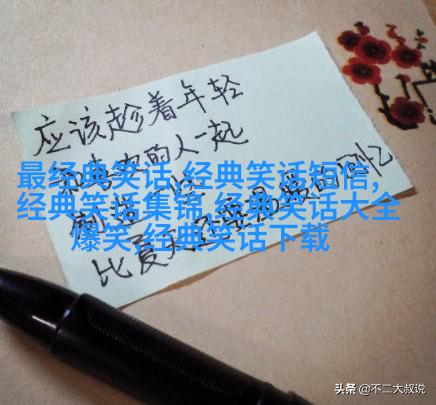 应该趁着年轻
的人一起
制造
比夏天还要温暖的回忆
最经典笑话,经典笑话短信,
经典笑话集锦,经典笑话大全
爆笑,经典笑话下载
头条 @不二大叔说